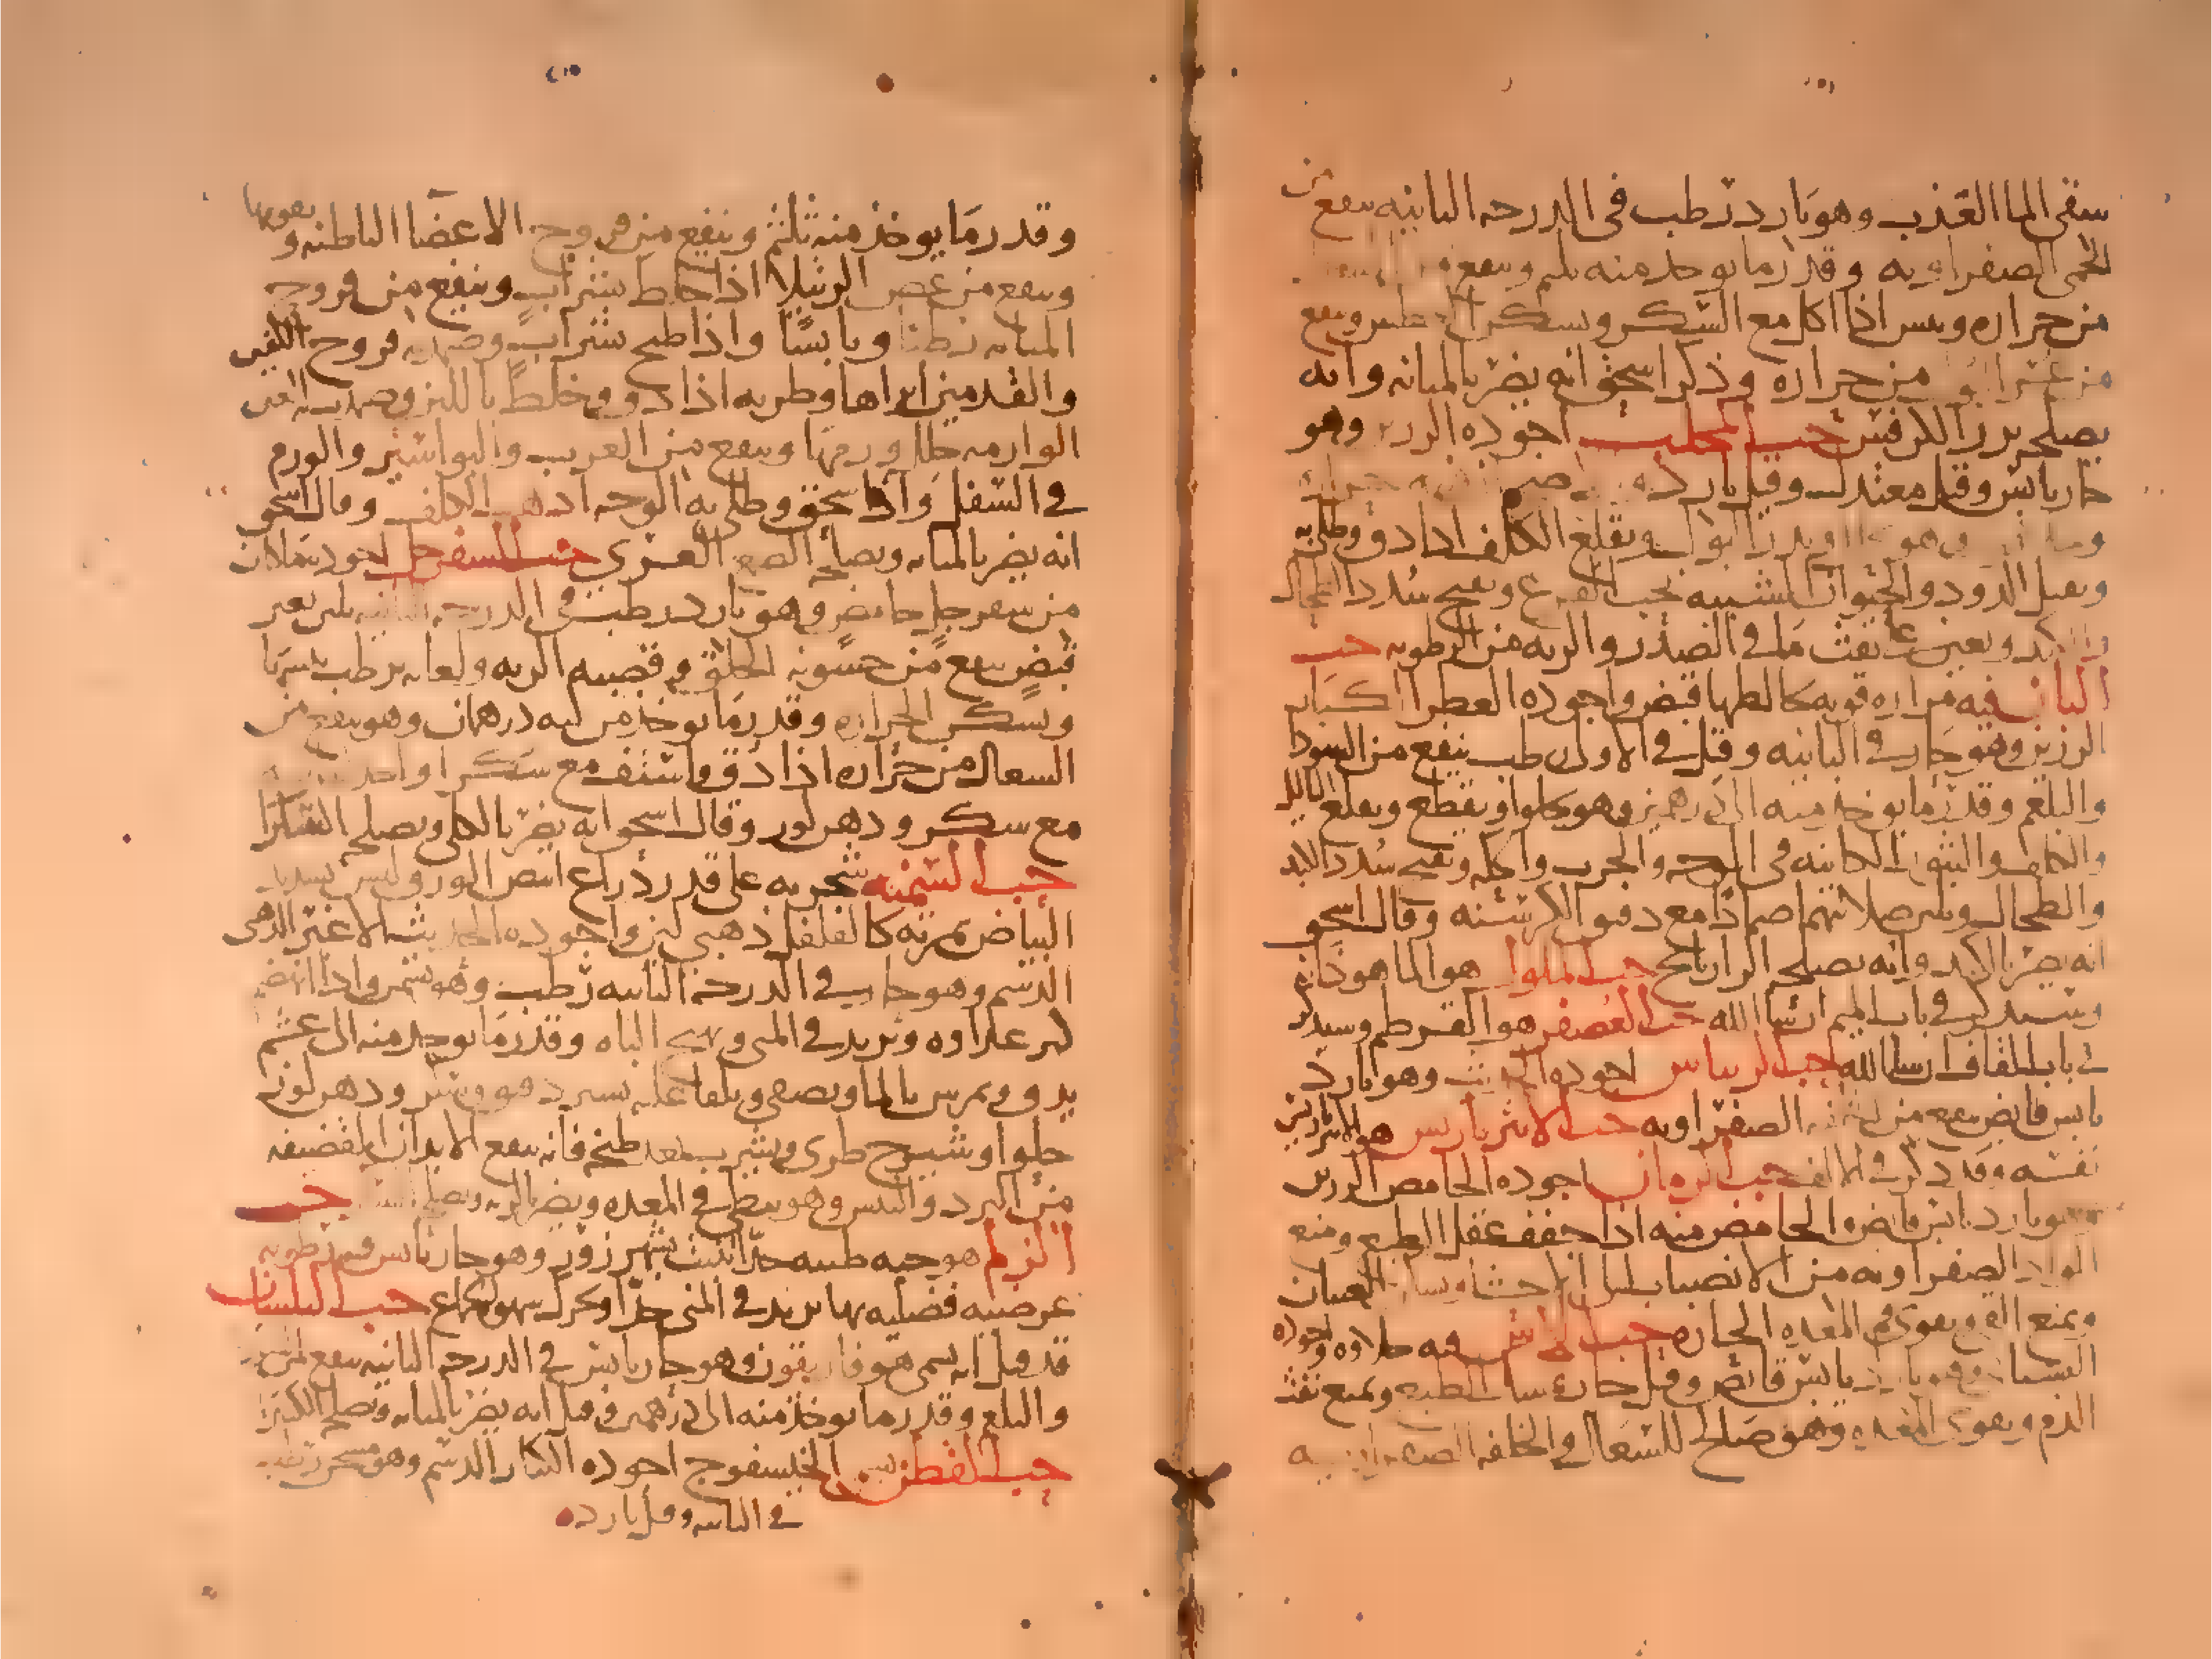 سقى الما العذب وهو بارد رطب فى الدرجه الثانيه ينفع من
الحمى الصفراويه وقدر ما يوخذ منه ثلثم وينفع
من حراره ويبس اذا اكل مع السكر ويسكر وينفع
من عسر البول من حراره وذكر اسحق انه يضر بالمثانه وانه
يصلحه بزر الكرفس حب المحلب اجوده الرزين وهو
حار يابس وقيل معتدل وقيل بارد
وهو يدر البول ويقلع الكلف اذا دق وطلى به
ويقتل الدود والحيوان الشبيه بحب القرع ويفتح سدد الطحال
والكبد ويعين على نفث ما فى الصدر والريه من الرطوبه حب
البان فيه مراره قويه يخالطها قبض واجوده العطر الكبار
الرزين وهو حار فى الثانيه وقيل فى الاولى رطب ينفع من السودا
والبلغم وقدر ما يوخذ منه الى درهمين وهو يجلوا ويقطع ويقلع الثاليل
والكلف والبثور الكاينه فى الوجه والجرب والحكه ويفتح سدد الكبد
والطحال ويلين صلابتهما ضمادا مع دقيق الكرسنه وقال اسحق
انه يضر بالكبد وانه يصلحه الرازيانج حب الملوك هو الماهودانه
وسنذكر فى باب الميم ان شا الله حب العصفر هو القرطم وسيذكر
فى باب القاف ان شا الله حب الريباس اجوده الحديث وهو بارد
يابس قابض ينفع من الخلفه الصفراويه حب الاثرباريس هو الاثرباريس
نفسه وقد ذكر فى الالف حب الرمان اجوده الحامض الرزين
وهو بارد يابس قابض والحامض منه اذا جفف عقل الطبع ومنع
المواد الصفراويه من الانصباب الى الاحشا وسكن الغثيان
ويمنع القى ويقوى فم المعده الحاره حب الاس فيه حلاوه واجوده
البستانى وهو بارد يابس قابض وقيل حار يمسك الطبيعه ويمنع نفث
الدم ويقوى المعده وهو صالح للسعال والخلفه الصفراويه
وقدر ما يوخذ منه ثلثم وينفع من قروح الاعضا الباطنه ويقويها
وينفع من عض الرتيلا اذا خلط بشراب وينفع من قروح
المثانه رطبا ويابسا واذا طبخ بشراب وضمد به قروح الكفين
والقدمين ابراها وطريه اذا دق وخلط باللبن وضمدت به العين
الوارمه حلل ورمها وينفع من الغرب والبواسير والورم
فى السفل واذا سحق وطلى به الوجه اذهب الكلف وقال اسحق
انه يضر بالمثانه ويصلحه الصمغ العربى حب السفرجل اجوده ما كان
من سفرجل حامض وهو بارد رطب فى الدرجه الثانيه يلين بغير
قبض ينفع من خشونه الحلق وقصبه الريه ولعابه يرطب يبسها
ويسكن الحراره وقدر ما يوخذ من لبه درهمان وهو ينفع من
السعال من حراره اذا دق واستف مع سكر او اخذ
مع سكر ودهن لوز وقال اسحق انه يضر بالكلى ويصلحه
حب السمنه شجره على قدر ذراع ابيض الورق ليس بشديد
البياض ثمرته كالفلفل ذهبى لين واجوده الحديث الاغبر الذهبى
الدسم وهو حار فى الدرجه الثانيه رطب وهو يسمن واذا انهضم
كثر غذاوه ويزيد فى المنى ويهيج الباه وقدر ما يوخذ منه الى عشره
يدق ويمرس بالما ويصفى ويلقا عليه يسير دقيق وسكر ودهن لوز
حلوا وشيرج طرى ويشرب بعد طبخه فانه ينفع الابدان القضيفه
من البرد واليبس وهو يبطى فى المعده ويضر بالريه حب
الزلم هو حبه طيبه جدا تنبت بشهرزور وهو حار يابس فيه رطوبه
عرضيه فضليه بها يزيد فى المنى جدا ويحرك شهوه الجماع حب البلسان
قد قيل انه يسمى هوفاريقون وهو حار يابس فى الدرجه الثانيه ينفع
والبلغم وقدر ما يوخذ منه الى درهمين وقيل انه يضر بالمثانه ويصلحه الكثيرا
حب القطن يسمى الخيسفوج اجوده الكبار الدسم وهو مسخن رطب
فى الثانيه وقيل بارده